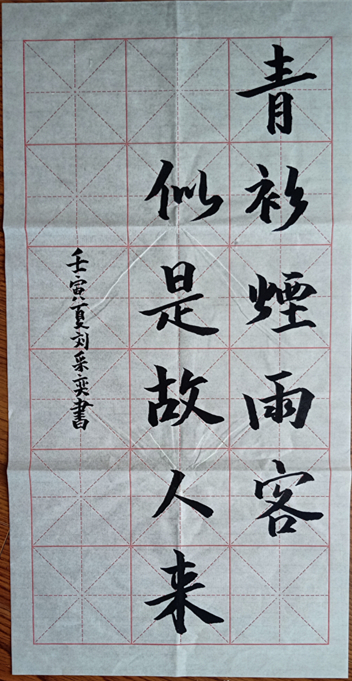 青衫煙雨客
似是故人来
壬寅夏刘采奕書